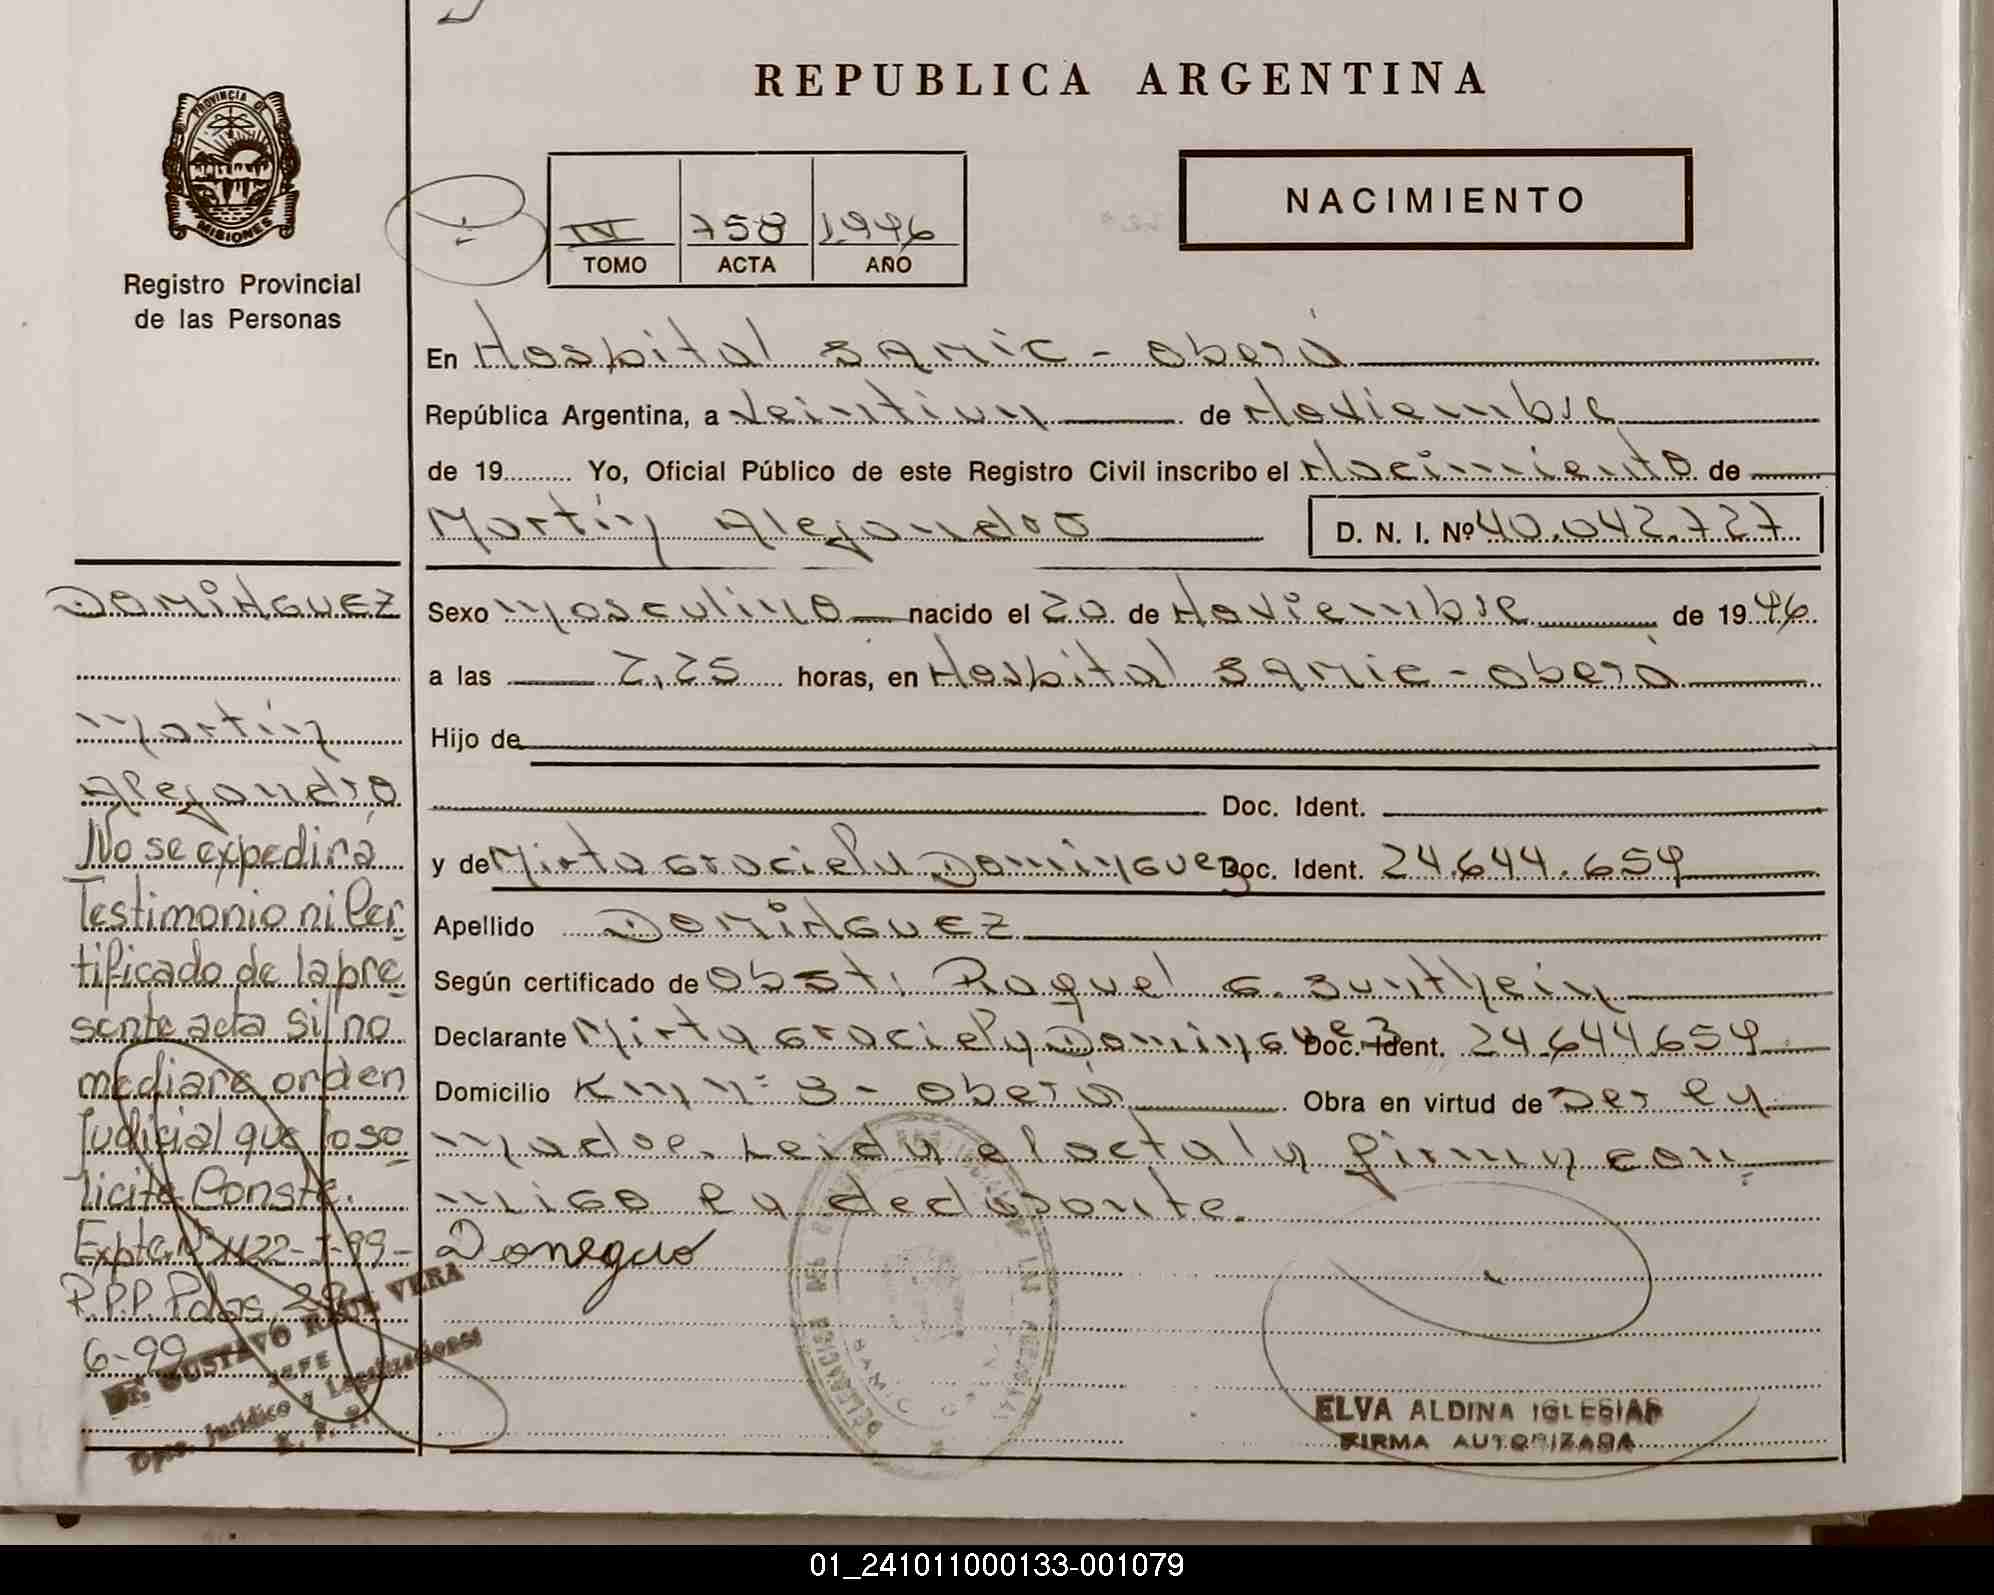 REPUBLICA ARGENTINA
PROVINCIA DE
MISIONES
Registro Provincial
de las Personas
IV 758 1996
TOMO ACTA AÑO
NACIMIENTO
En Hospital SAMIC - Oberá
República Argentina, a Veintiun de Noviembre
de 19.......... Yo, Oficial Público de este Registro Civil inscribo el Nacimiento de
Martín Alejandro
D. N. I. Nº 40.042.727
Sexo Masculino nacido el 20 de Noviembre de 19 96
a las 2,25 horas, en Hospital SAMIC - Oberá
Hijo de
Doc. Ident.
y de Mirta Graciela Dominguez Doc. Ident. 24.644.659
Apellido DOMINGUEZ
Según certificado de Obst. Raquel G.
Declarante Mirta Graciela Dominguez Doc. Ident. 24.644.659
Domicilio Km Nº 3 - Oberá Obra en virtud de Ser la
madre. Leida el acta la firma con
migo la declarante.
DOMINGUEZ
Martín
Alejandro
No se expedirá
Testimonio ni Cer
tificado de la pre
sente acta si no
mediare orden
Judicial que lo so
licite Conste.
Expte. Nº 1122-J-99-
R.P.P. Pdas 29
6-99
Dr. GUSTAVO RAUL VERA
JEFE
Dpto. Jurídico y Legalizaciones
R. P. P.
SAMIC
ELVA ALDINA IGLESIAS
FIRMA AUTORIZADA
01_241011000133-001079